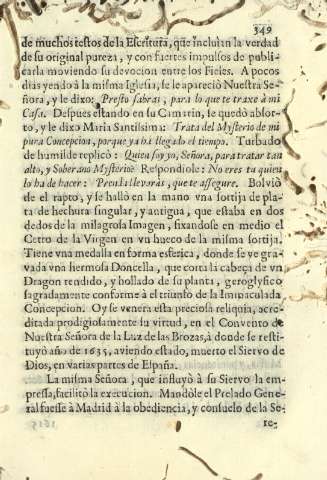 349
de muchos testos de la Escritura, que incluian la verdad
de su original pureza, y con fuertes impulsos de publi-
carla moviendo su devocion entre los Fieles. A pocos
dias yendo à la misma Iglesia, se le apareciò Nuestra Se-
ñora, y le dixo: Presto sabras, para lo que te traxe à mi
Casa. Despues estando en su Camarin, le quedò absor-
to, y le dixo Maria Santisima: Trata del Mysterio de mi
pura Concepcion, porque ya há llegado el tiempo. Turbado
de humilde replicò: Quien soy yo, Señora, para tratar tan
alto, y Soberano Mysterio? Respondiole: No eres tu quien
lo ha de hacer: Prenda llevaràs, que te assegure. Bolviò
de el rapto, y se hallò en la mano vna sortija de pla-
ta de hechura singular, y antigua, que estaba en dos
dedos de la milagrosa Imagen, fixandose en medio el
Cetro de la Virgen en vn hueco de la misma sortija.
Tiene vna medalla en forma esferica, donde se ve gra-
vada vna hermosa Doncella, que corta la cabeça de vn
Dragon tendido, y hollado de su planta, geroglyfico
sagradamente conforme à el triunfo de la Inmaculada
Concepcion. Oy se venera esta preciosa reliquia, acre-
ditada prodigiosamente su virtud, en el Convento de
Nuestra Señora de la Luz de las Brozas, à donde se resti-
tuyò año de 1635, aviendo estado, muerto el Siervo de
Dios, en varias partes de España.
La misma Señora, que influyò à su Siervo la em-
pressa, facilitò la execucion. Mandòle el Prelado Gene-
ral fuesse à Madrid à la obediencia, y consuelo de la Se-
re-